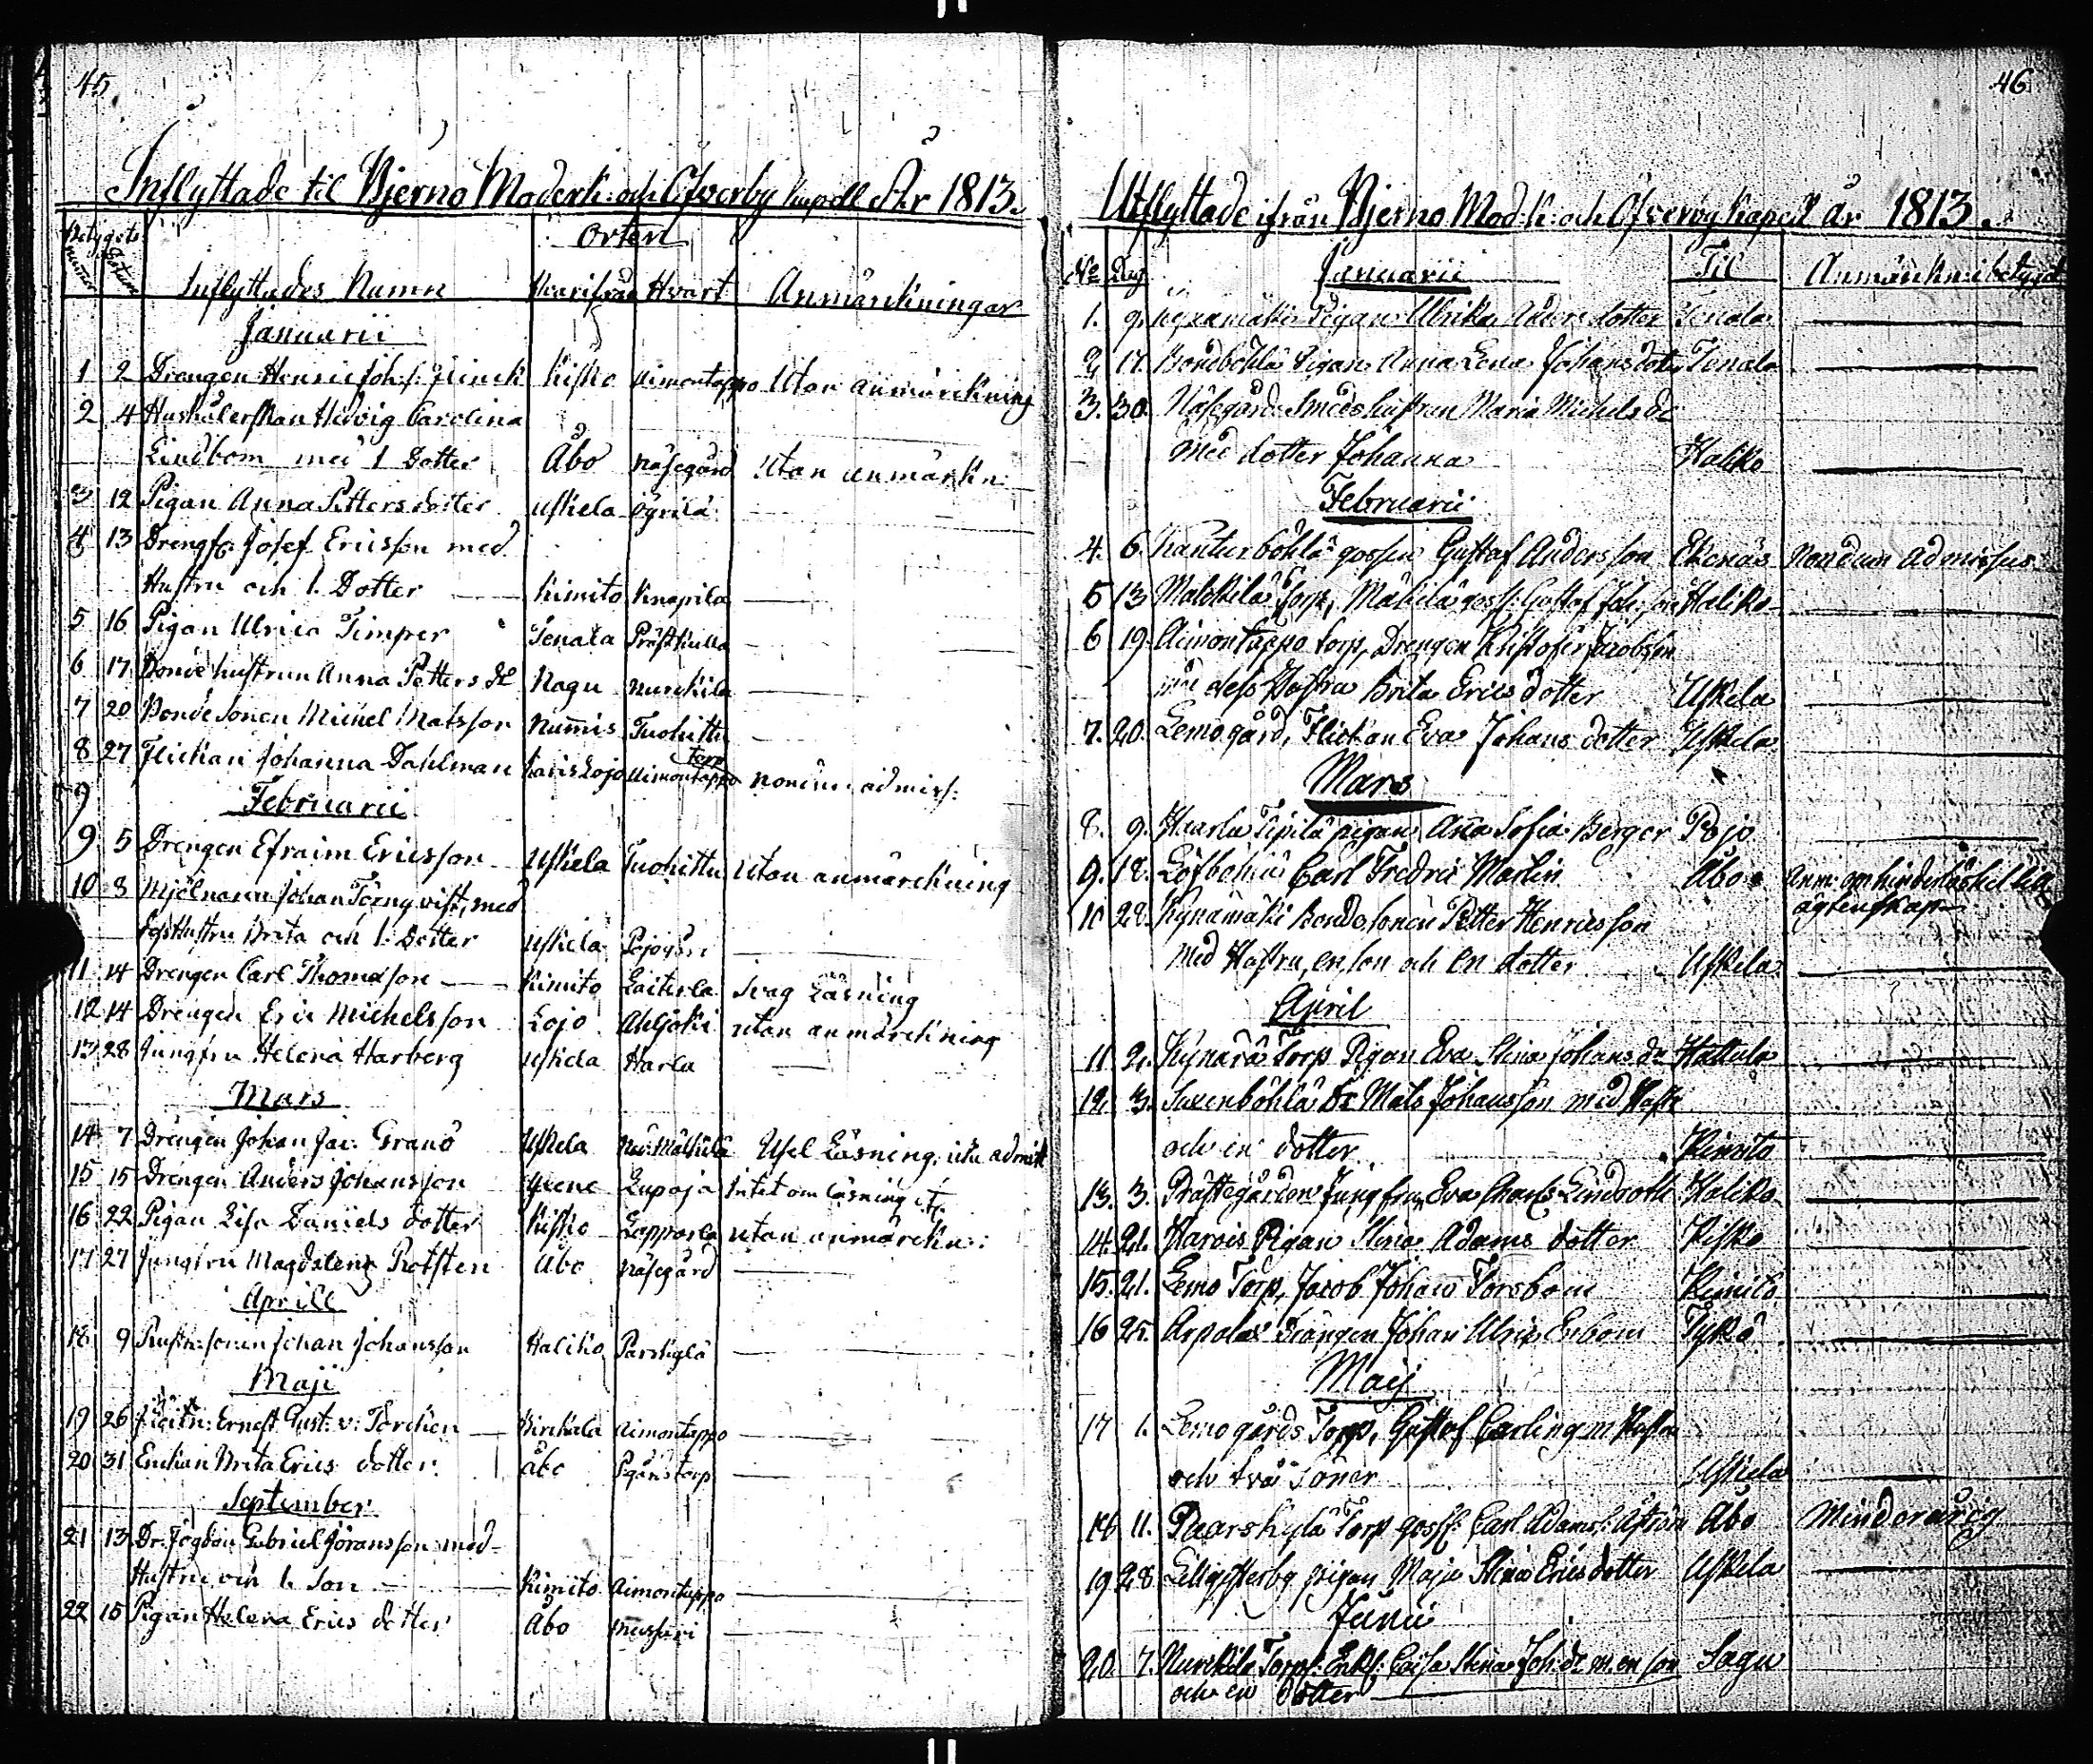 45.
Inflyttade til Bjerno Moderk: och Öfverby kapell År 1813.
Betygets
nummer Datum
Inflyttades Namn
Orten
Hvarifrån Hvart Anmärckningar
Januarii
1 2 Drengen Henric Joh:s: Flinck Kisko Aimontappo Utan anmärckning
2 4 Hushålerskan Hedvig Carolina
Lindbom med 1 Dotter Åbo Näsegård Utan anmärkn:
3 12 Pigan Anna Petters dotter Uskela
4 13 Josef Ericsson med
Hustru och 1. Dotter Kimito Knapila
5 16 Pigan Ulrica Timper Tenala Prästkulla
6 17 Bonde hustrun Anna Petters dr Nagu Nurckila
7 20 Bonde Sonen Michel Matsson Numis Tuohittu
8 27 Flickan Johanna Dahlman Karis Lojo Aimontappo torp nondum admiss:
Februarii
9 5 Drengen Efraim Ericsson Uskela Tuohittu Utan anmärckning
10 8 Mjölnaren Johan Törnqvist, med
Hustru Brita och 1. Dotter Uskela
11 14 Drengen Carl Thomasson Kimito Laiterla Svag Läsning
12 14 Drengen Eric Michelsson Lojo Ahljoki utan anmärckning
13 28 Jungfru Helena Harberg Uskela Harla
Mars
14 7 Drengen Johan Jac: Granö Uskela Usel Läsning, icke admitt
15 15 Drengen Anders Johansson Lupaja Intet om läsning
16 22 Pigan Lisa Daniels dotter Kisko Lapparla utan anmärckn:
17 27 Jungfru Magdalena Åbo Näsegård
Aprill
18. 9 Johan Johansson Haliko Parskylä
Maji
19 26 Ernst Gust: v: Torcken Birckala Aimontappo
20 31 Enckan Brita Erics dotter. Åbo
September
21 13 Gabriel Göransson med
Hustru och 1. Son Kimito Aimontappo
22 15 Pigan Helena Erics dotter Åbo
46
Utflyttade ifrån Bjerno Mod:k: och Öfverby kapell år 1813.
No Dag Januarii Til Anmärckn: i betyget
1. 9. Pigan Ulrika Anders dotter Tenala
2 17. Bondböhle Pigan Anna Lena Johans dotter Tenala
3. 30. Näsegård Smeds hustrun Maria Michels dr
med dotter Johanna Haliko
Februarii
4. 6. gossen Gustaf Andersson Ekenäs Nondum admissus
5 13 Torp, goss: Gustaf Joh:son Haliko
6 19. Aimontappo torp, Drengen Kristofer Jacobsson
med dess Hustru Brita Erics dotter Uskela
7. 20. Lemo gård, Flickan Eva Johans dotter Uskela
Mars
8. 9. Haarla Sipilä pigan Ana Sofia Berger Pojo
9. 18. Löfböhle Carl Fredric Martin Åbo Anm: om hinderlöshet til
ägtenskap
10 28. Kynämäki Bonde Sonen Petter Henricsson
med Hustru, en son och en dotter Uskela
April
11. 2. Torp Pigan Eva Stina Johans dr Hattula
12. 3. Saxenböhle Dr Mats Johansson med Hustr
och en dotter Kimito
13. 3. Prästegården Jungfru Eva Charl: Lindroth Haliko
14. 21. Pigan Stina Adams dotter Kisko
15. 21. Lemo Torp, Jacob Johan Forsbom Kimito
16 25. Arpala Drängen Johan Ulric Enbom Tyko
Maij
17 1. Lemo gårds Torp, Gustaf Carling m Hustru
och två Söner Uskela
18 11. Paarskylä Torp goss: Carl Adams: Åström Åbo Minderårig
19 28. pigan Maja Stina Erics dotter Uskela
Junii
20. 7. Nurckila Torp: Enk: Caisa Stina Joh: dr m. en son Sagu
och en dotter